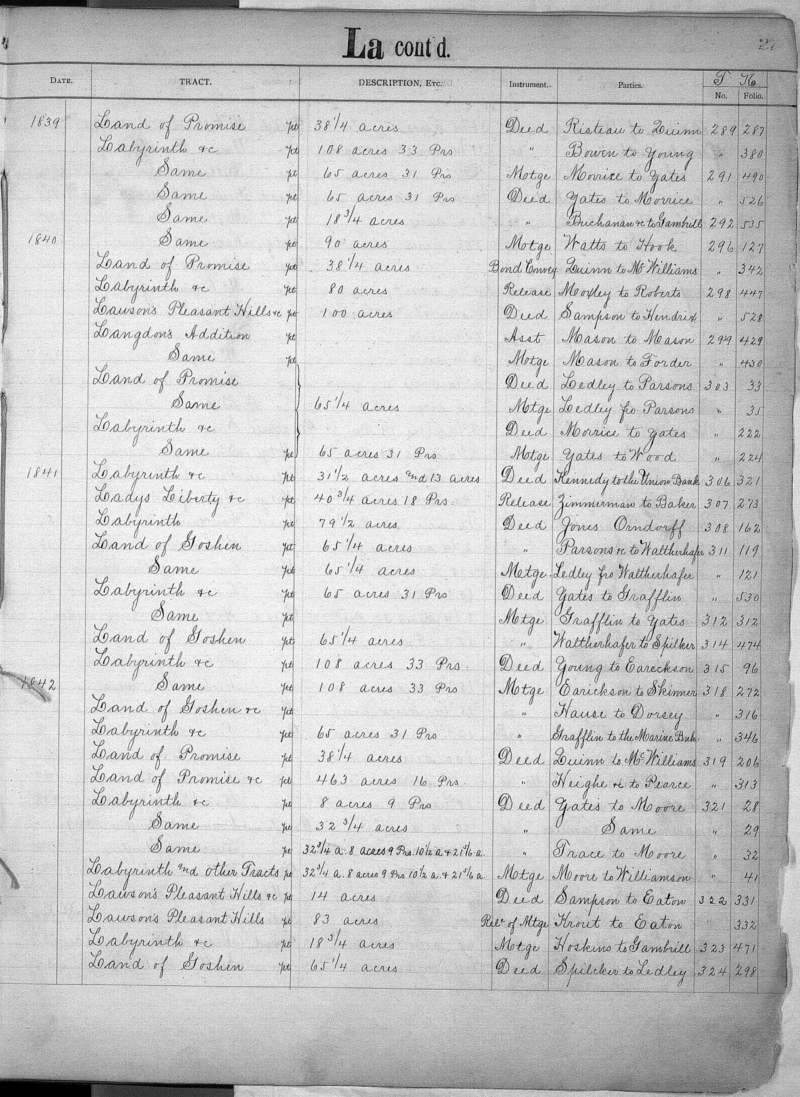 La cont'd.
27
DATE. TRACT. DESCRIPTION, ETC. Instrument. Parties. T K
No. Folio.
1839 Land of Promise pt 38 1/4 acres Deed Risteau to Quinn 289 287
Labyrinth &c pt 108 acres 33 Prs " Bowen to Young " 380
Same pt 65 acres 31 Prs Motge Morrice to Yates 291 490
Same pt 65 acres 31 Prs Deed Yates to Morrice " 526
Same pt 18 3/4 acres " Buchanan &c to Gambrill 292 535
1840 Same pt 90 acres Motge Watts to Hook 296 127
Land of Promise pt 38 1/4 acres Bond Convey Quinn to McWilliams " 342
Labyrinth &c pt 80 acres Release Moxley to Roberts 298 447
Lawson's Pleasant Hills &c pt 100 acres Deed Sampson to Hendrix " 528
Langdon's Addition Asst Mason to Mason 299 429
Same pt Motge Mason to Forder " 430
Land of Promise Deed Ledley to Parsons 303 33
Same 65 1/4 acres Mtge Ledley fro Parsons " 35
Labyrinth &c Deed Morrice to Yates " 222
Same pt 65 acres 31 Prs Motge Yates to Wood " 224
1841 Labyrinth &c pt 31 1/2 acres and 13 acres Deed Kennedy to the Union Bank 306 321
Ladys Liberty &c pt 40 3/4 acres 18 Prs Release Zimmerman to Baker 307 273
Labyrinth pt 79 1/2 acres Deed Jones Orndorff 308 162
Land of Goshen pt 65 1/4 acres " Parsons &c to Waltherhafer 311 119
Same pt 65 1/4 acres Motge Ledley fro Waltherhafer " 121
Labyrinth &c pt 65 acres 31 Prs Deed Yates to Grafflin " 530
Same pt Mtge Grafflin to Yates 312 312
Land of Goshen pt 65 1/4 acres " Waltherhafer to Spilker 314 474
Labyrinth &c pt 108 acres 33 Prs Deed Young to Eareckson 315 96
1842 Same pt 108 acres 33 Prs Mtge Earickson to Skinner 318 272
Land of Goshen &c pt " Hause to Dorsey " 316
Labyrinth &c pt 65 acres 31 Prs " Grafflin to the Marine Bnk " 346
Land of Promise pt 38 1/4 acres Deed Quinn to McWilliams 319 206
Land of Promise &c pt 463 acres 16 Prs " Heighe &c to Pearce " 313
Labyrinth &c pt 8 acres 9 Prs Deed Yates to Moore 321 28
Same pt 32 3/4 acres " Same " 29
Same pt 32 3/4 a. 8 acres 9 Prs. 10 1/2 a. & 21 5/16 a. " Trace to Moore " 32
Labyrinth and other Tracts pt 32 3/4 a. 8 acres 9 Prs 10 1/2 a. & 21 5/16 a Mtge Moore to Williamson " 41
Lawson's Pleasant Hills &c pt 14 acres Deed Sampson to Eaton 322 331
Lawson's Pleasant Hills pt 83 acres Rels of Mtge Krout to Eaton " 332
Labyrinth &c pt 18 3/4 acres Mtge Hoskins to Gambrill 323 471
Land of Goshen pt 65 1/4 acres Deed Spilcker to Ledley 324 298